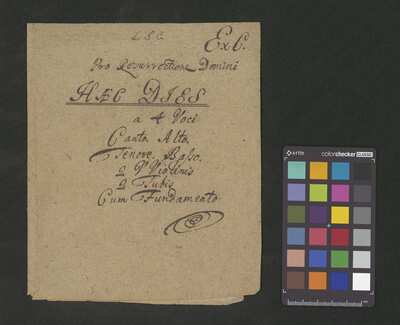 LSC
Ex C.
Pro Resurrectione Domini
HÆC DIES
a 4 Voci
Canto, Alto,
Tenore, Basso.
2 Violinis
2 Tubis
Cum Fundamento
x-rite
colorchecker CLASSIC